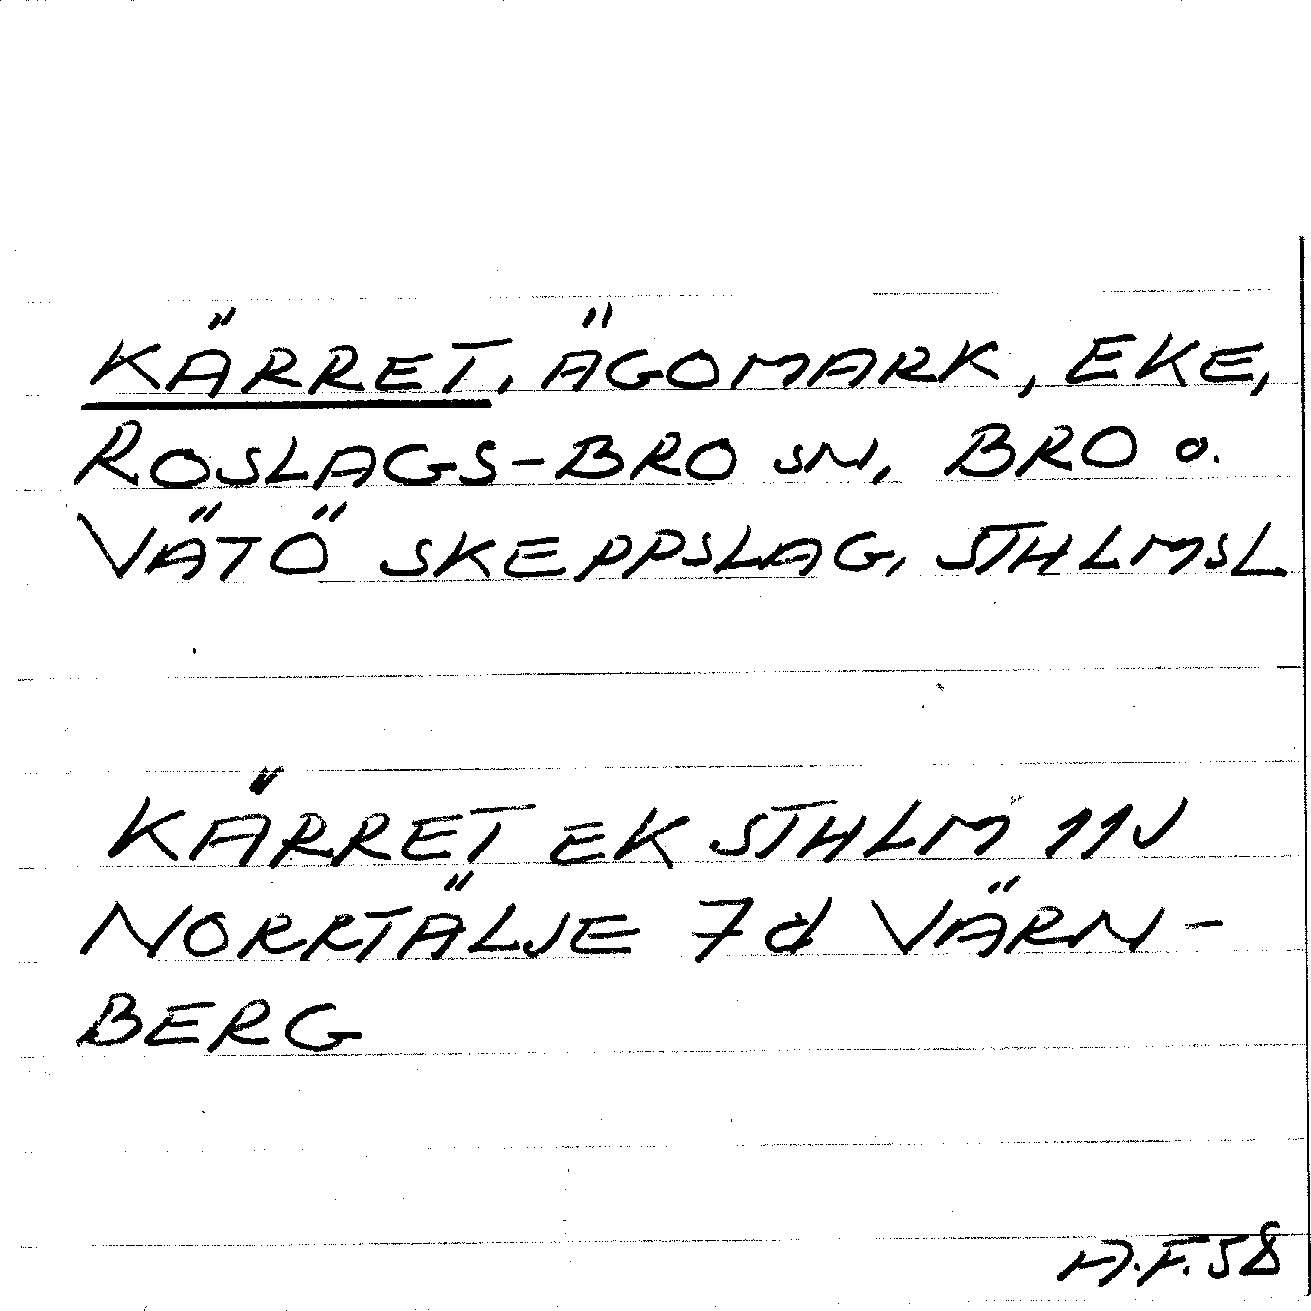 KÄRRET, ÄGOMARK, EKE,
ROSLAGS-BRO SN, BRO o.
VÄTÖ SKEPPSLAG, STHLMSL
KÄRRET EK STHLM 11V
NORRTÄLJE 7d VÄRN-
BERG
H.F.58